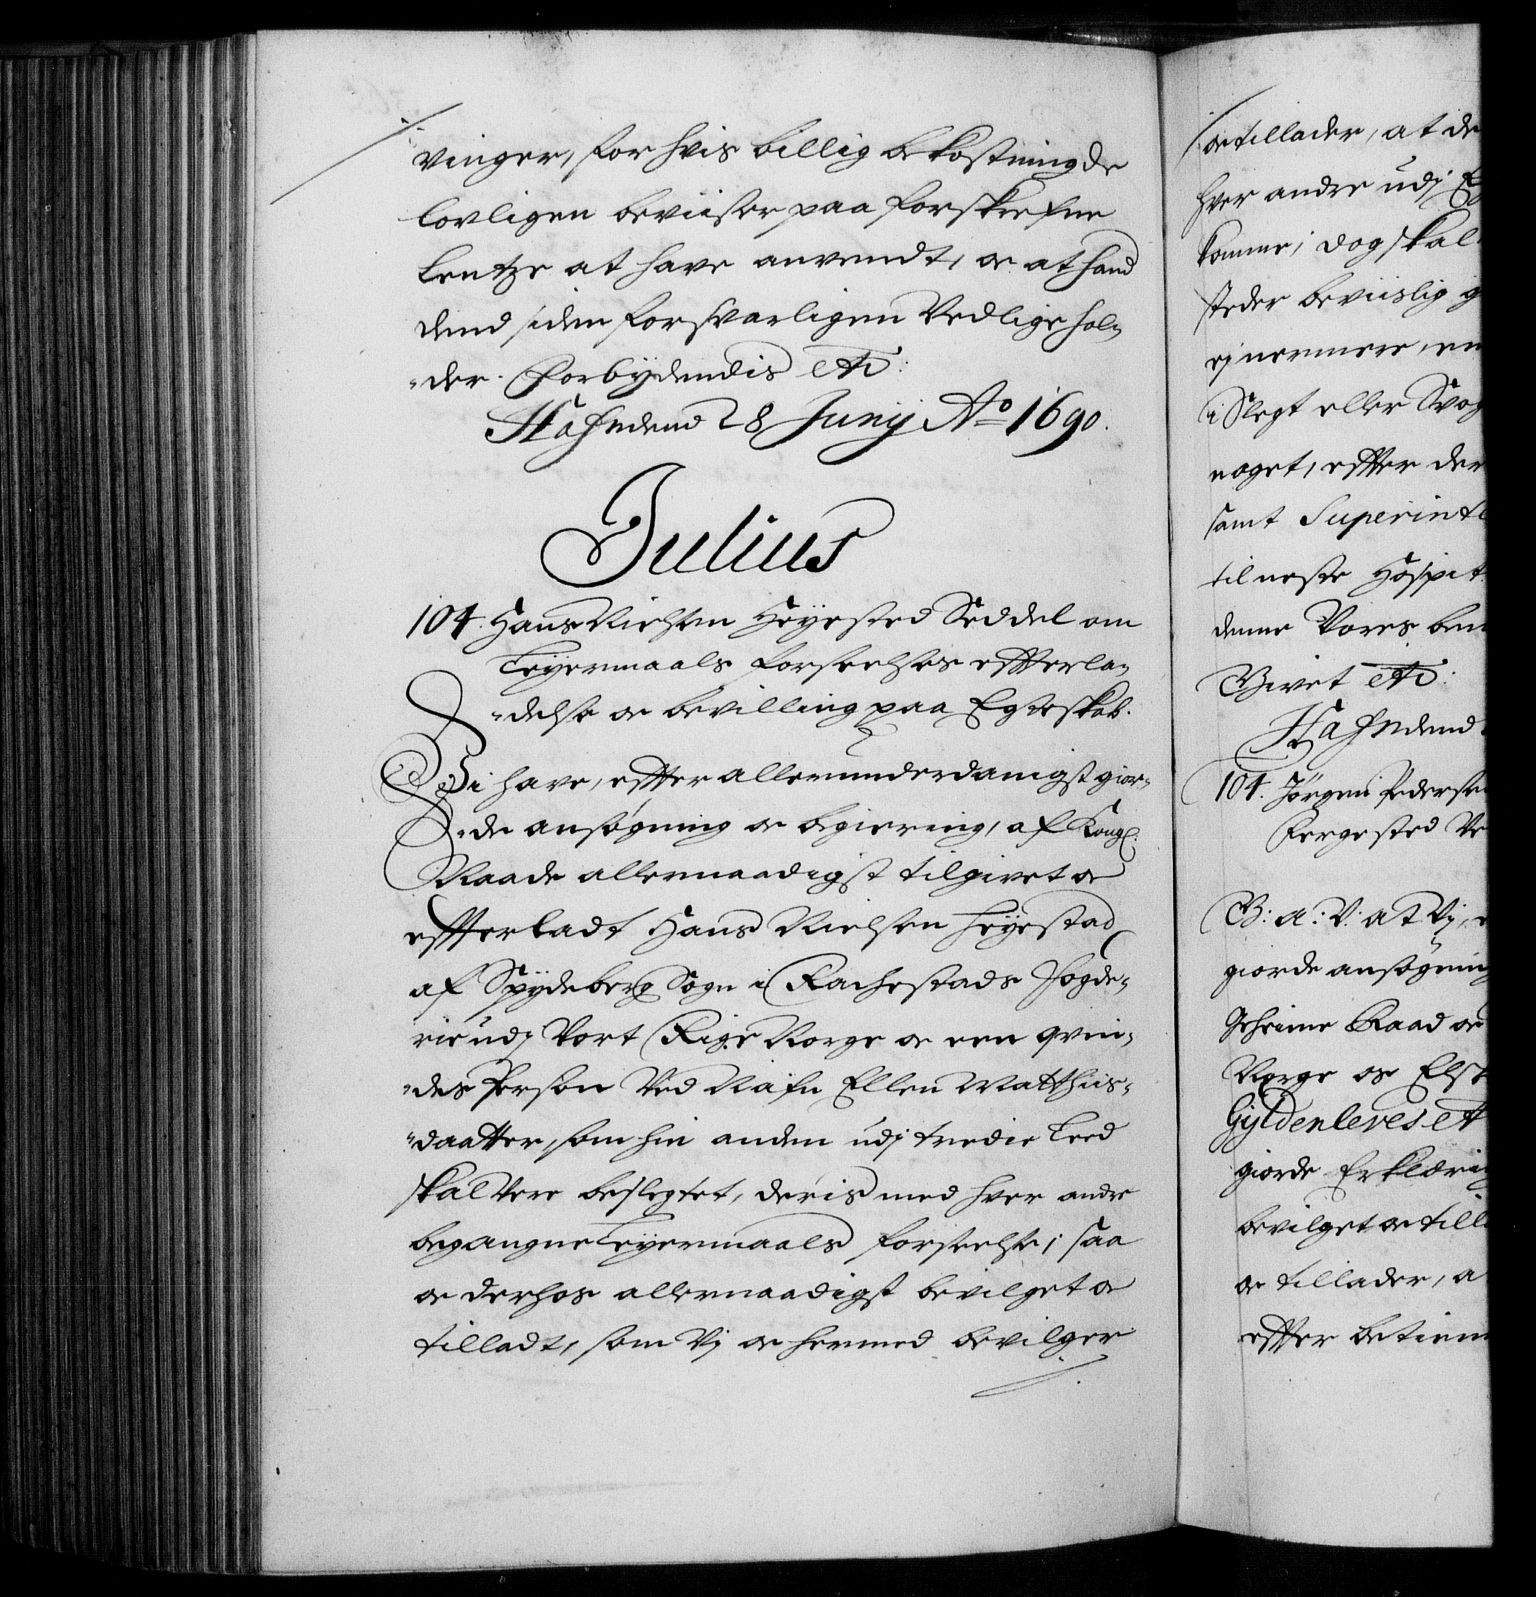 vinger, for hvis billig bekostning de
lovligen beviiser paa forskrefne
Lentze at have anvendt, oc at hand
dend siden forsvarligen Vedlige hol-
-der. Forbydendis etc:
Hafn dend 28 Junij Ao 1690.
Julius
104. Hans Nielsen Heyested Seddel om
Leyermaals forseelses efterla-
-delse oc bevilling paa Egteskab.
Vi have, efter allerunderdanigst gior-
-de ansøgning oc begiering, af Kongl.
Naade allernaadigst tilgivet oc
efterladt Hans Nielsen Heyestad
af Spydeberg Sogn i Rachestads Fogde-
rie udj Vort Rige Norge oc een qvin-
-des Person Ved Nafn Ellen Matthiis-
-daatter, som hin anden udj tredie Leed
skal Vere beslegtet, deris med hver andre
begangne Leyermaals forseelse; saa
oc derhos allernaadigst bevilget oc
tilladt, som Vj oc hermed bevilger
oc tillader, at de
hver andre udj
komme; dog skal
steder beviislig
ej nermere, en
i Slegt eller Svog
noget, efter der
samt Superinte
til neste Hospit
denne Vores
Givet etc:
Hafn dend
104. Jørgen Peders
Bergested
G: a: V: at Vj,
giorde ansøgning
Geheime Raad oc
Norge os Elsk
Gyldenleves et
giorde Erklæring
bevilget oc till
oc tillader, a
efter